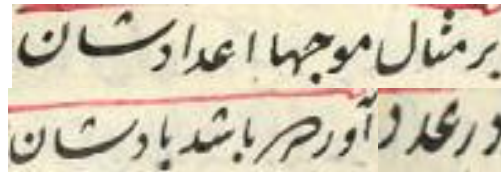 بر مثال موجها اعدادشان
در عدد آورده باشد بادشان